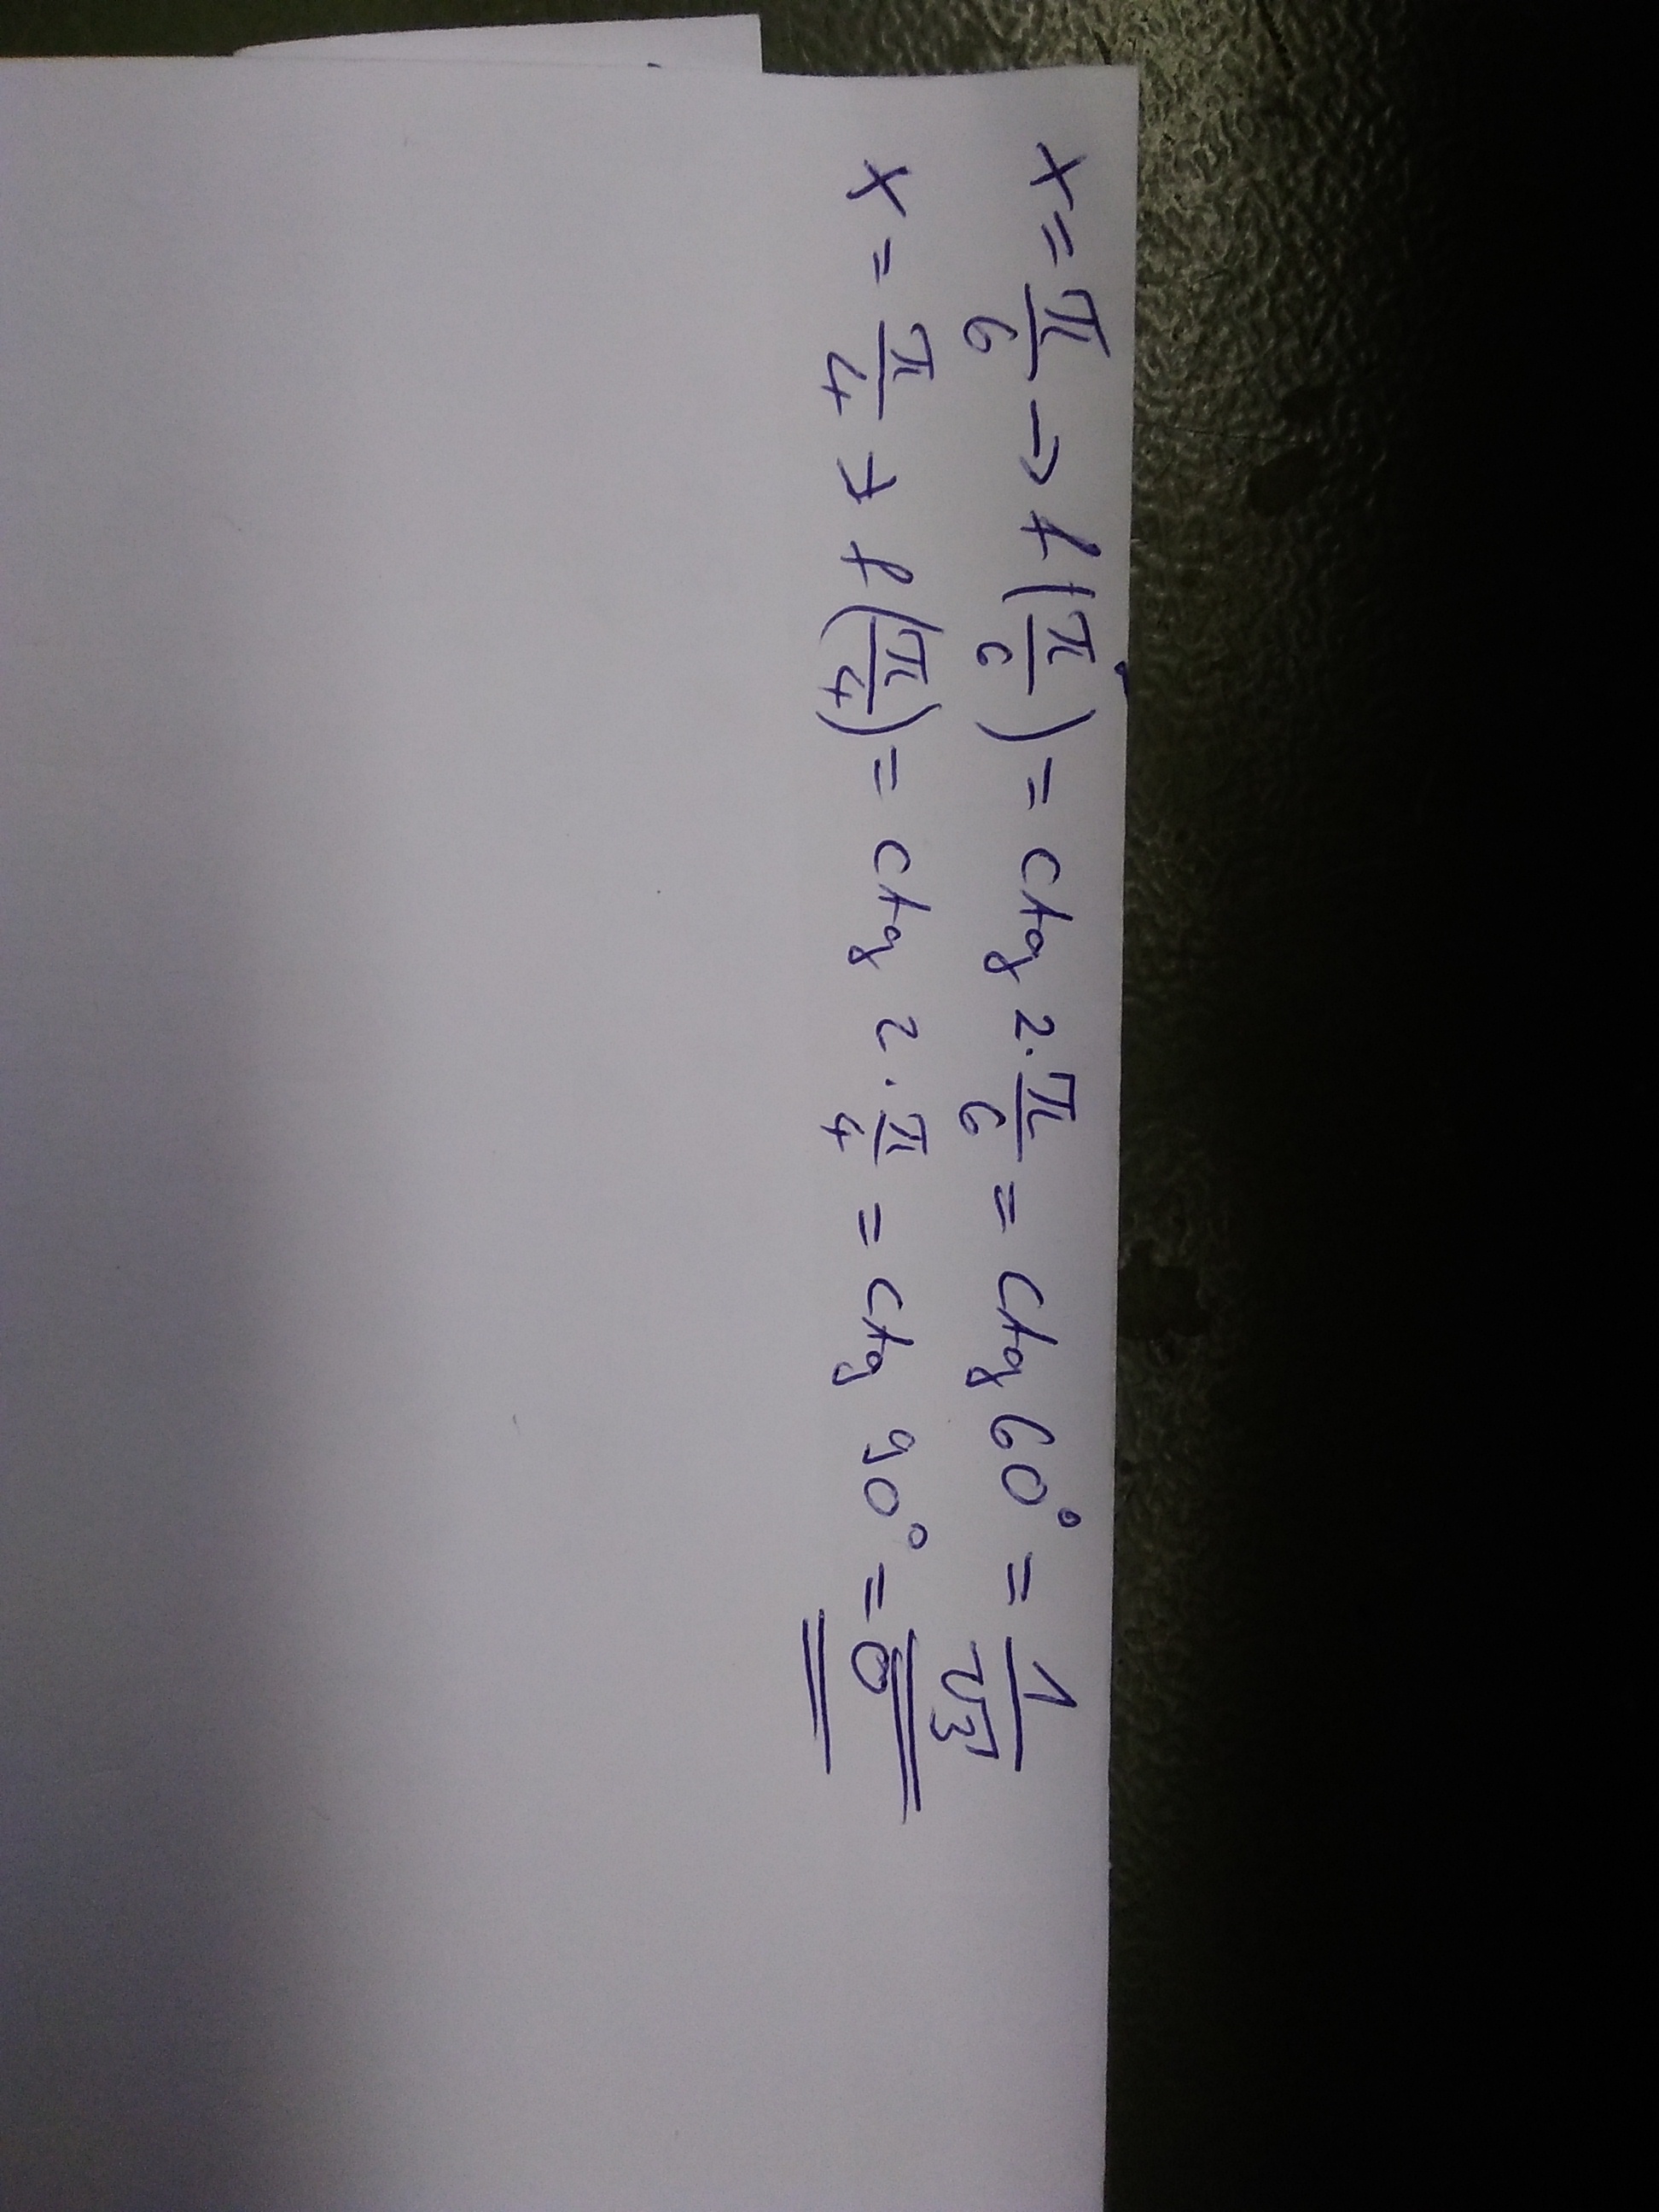 x = π/6 → f(π/6) = ctg 2·π/6 = ctg 60° = 1/√3
x = π/4 → f(π/4) = ctg 2·π/4 = ctg 90° = 0